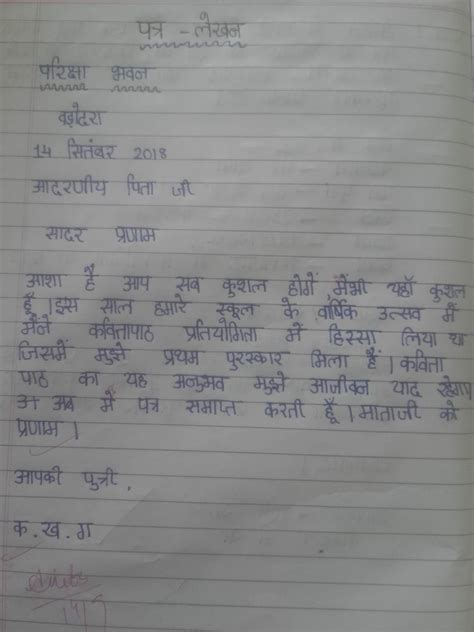 पत्र - लेखन
परिक्षा भवन
वडोदरा
14 सितंबर 2018
आदरणीय पिता जी
सादर प्रणाम
आशा है आप सब कुशल होगें, मैंभी यहाँ कुशल
हूँ। इस साल हमारे स्कूल के वार्षिक उत्सव में
मैंने कवितापाठ प्रतियोगिता में हिस्सा लिया था
जिसमें मुझे प्रथम पुरस्कार मिला हैं। कविता
पाठ का यह अनुभव मुझे आजीवन याद रहेगा।
अब में पत्र समाप्त करती हूँ। माताजी को
प्रणाम।
आपकी पुत्री,
क. ख. ग